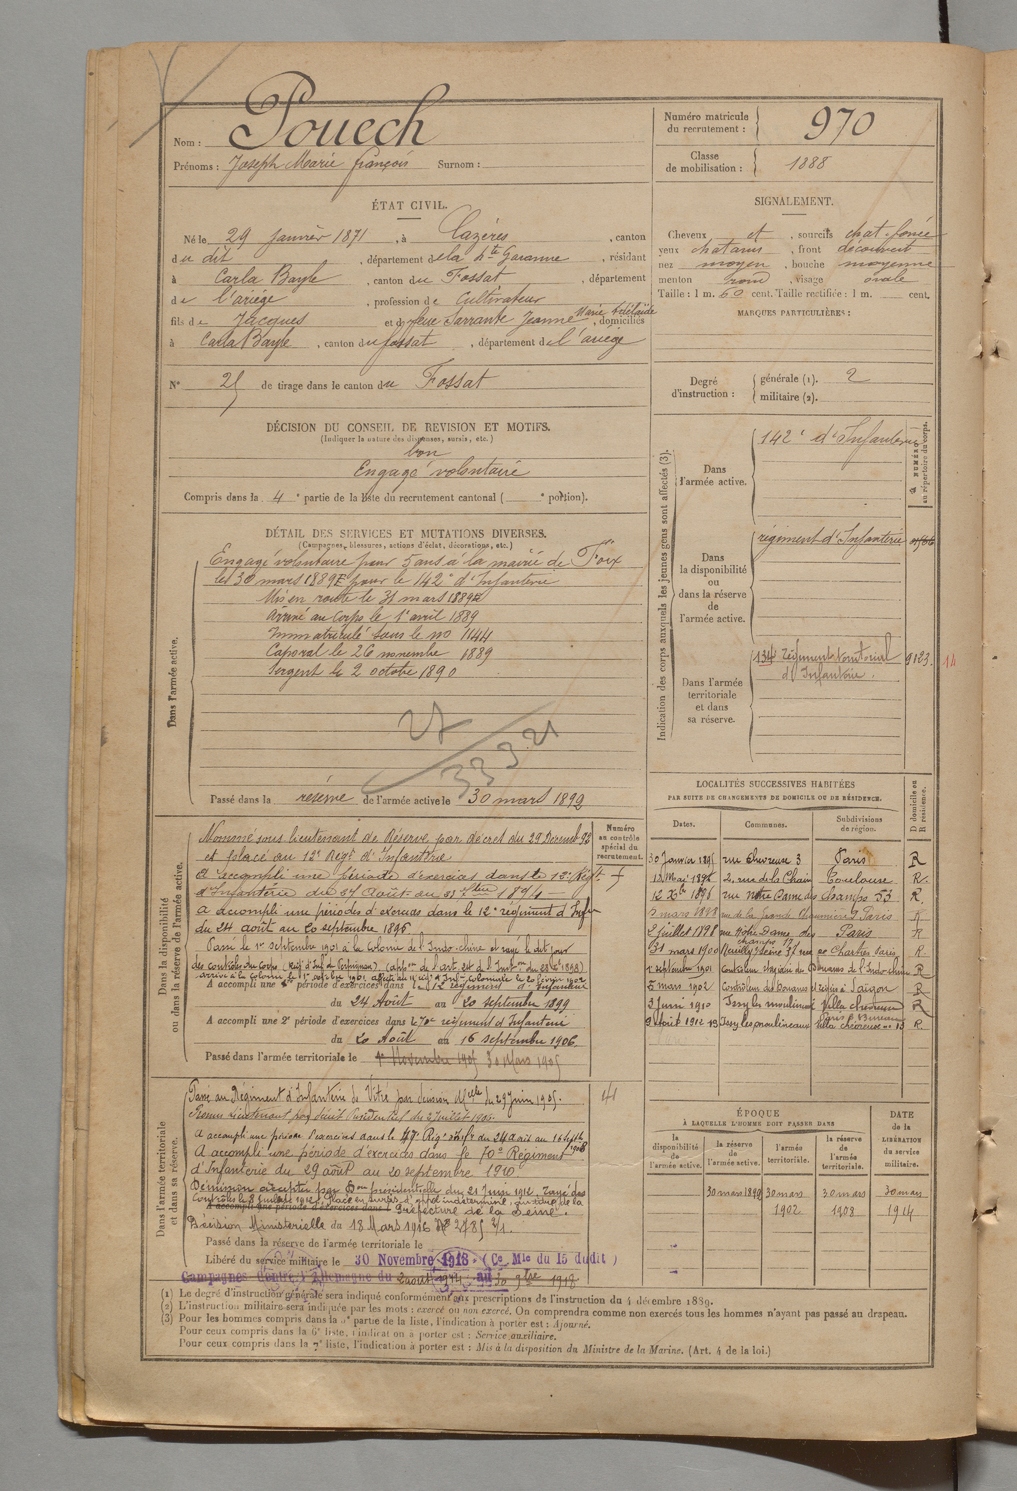 Nom : Pouech
Prénoms : Joseph Marie françois Surnom :
Numéro matricule du recrutement : 970
Classe de mobilisation : 1888
ÉTAT CIVIL.
Né le 29 Janvier 1871, à Cazères, canton
du dit, département de la hte Garonne, résidant
à Carla Bayle, canton du Fossat, département
de l'ariège, profession de Cultivateur
fils de Jacques et de feue Sarrante Jeanne Marie Adélaïde, domiciliés
à Carla Bayle, canton du fossat, département de l'ariège
N° 25 de tirage dans le canton du Fossat
SIGNALEMENT.
Cheveux et, sourcils chat. foncé
yeux chatains, front découvert
nez moyen, bouche moyenne
menton rond, visage ovale
Taille : 1 m. 60 cent. Taille rectifiée : 1 m. cent.
MARQUES PARTICULIÈRES :
Degré d'instruction : générale (1). 2
militaire (2).
DÉCISION DU CONSEIL DE REVISION ET MOTIFS.
(Indiquer la nature des dispenses, sursis, etc.)
bon
Engagé volontaire
Compris dans la 4e partie de la liste du recrutement cantonal ( e portion).
DÉTAIL DES SERVICES ET MUTATIONS DIVERSES.
(Campagnes, blessures, actions d'éclat, décorations, etc.)
Dans l'armée active.
Engagé volontaire pour 5 ans à la mairie de Foix
le 30 mars 1889 pour le 142e d'Infanterie
Mis en route le 31 mars 1889
Arrivé au Corps le 1er avril 1889
Immatriculé sous le no 1144
Caporal le 26 novembre 1889
Sergent le 2 octobre 1890
Passé dans la réserve de l'armée active le 30 mars 1892
Indication des corps auxquels les jeunes gens sont affectés (3).
NUMÉRO au répertoire du corps.
Dans l'armée active.
142e d'Infanterie
Dans la disponibilité ou dans la réserve de l'armée active.
régiment d'Infanterie
Dans l'armée territoriale et dans sa réserve.
134e régiment territorial d'Infanterie.
9123. 14
Dans la disponibilité ou dans la réserve de l'armée active.
Numéro au contrôle spécial du recrutement.
Nommé sous lieutenant de Réserve par décret du 29 Décembre 93
et placé au 12e Regt d'Infanterie
A accompli une période d'exercices dans le 12e Régt
d'Infanterie du 27 Août au 1894
a accompli une périodes d'exercices dans le 12e régiment d'Infie
du 24 août au 20 septembre 1896
Passé le 1er septembre 1901 à la colonie de l'Indo-chine et rayé le dit jour
A accompli une 1re période d'exercices dans le 12 régiment d'Infanterie
du 24 Août au 20 septembre 1899
A accompli une 2e période d'exercices dans le 70e régiment d'Infanterie
du 20 Août au 16 septembre 1906
Passé dans l'armée territoriale le 1er Novembre 1905 30 Mars 1905
LOCALITÉS SUCCESSIVES HABITÉES
PAR SUITE DE CHANGEMENTS DE DOMICILE OU DE RÉSIDENCE.
Dates. Communes. Subdivisions de région. D domicile ou R résidence.
30 Janvier 1895 rue Chevreuse 3 Paris R
12 Mai 1895 2, rue de la Chaine Toulouse R.
12 Xbre 1896 rue Notre Dame des Champs 53 R
3 mars 1898 rue de la grande Chaumière Paris R
2 juillet 1898 rue Notre-Dame des champs Paris R
31 mars 1900 Neuilly s/ Seine 37 rue de Chartres Paris R.
1er septembre 1901 Contrôleur stagiaire des Douanes de l'Indo-chine R
5 mars 1902 Contrôleur des Douanes et régies à Saigon R
3 Juin 1910 Issy les moulineaux Villa chevreuse R
9 Août 1912 Issy les moulineaux villa chevreuse 15 R
Dans l'armée territoriale et dans sa réserve.
Passé au Régiment d'Infanterie de Vitré par décision Melle du 29 Juin 1905.
Promu Lieutenant par décret Présidentiel du 2 Juillet 1905.
A accompli une période d'exercices dans le 47e Régt d'Infie du 24 août au 16 Septbre 1908
A accompli une période d'exercices dans le 70e Régiment
d'Infanterie du 29 août au 20 septembre 1910
Démission acceptée par Don présidentielle du 21 Juin 1912. Rayé des
Contrôles le 8 Juillet 1912. Placé en sursis d'appel indéterminé, au titre de la
A accompli une période d'exercices dans l Préfecture de la Seine.
Décision Ministerielle du 18 Mars 1916 No 2485 2/1.
Passé dans la réserve de l'armée territoriale le
Libéré du service militaire le 30 Novembre 1918 (Ce Mle du 15 dudit)
Campagnes Contre l'Allemagne du 2 août 1914 au 30 9bre 1918
ÉPOQUE
À LAQUELLE L'HOMME DOIT PASSER DANS
la disponibilité de l'armée active. la réserve de l'armée active. l'armée territoriale. la réserve de l'armée territoriale.
DATE de la LIBÉRATION du service militaire.
30 mars 1892 30 mars 1902 30 mars 1908 30 mars 1914
(1) Le degré d'instruction générale sera indiqué conformément aux prescriptions de l'instruction du 4 décembre 1889.
(2) L'instruction militaire sera indiquée par les mots : exercé ou non exercé. On comprendra comme non exercés tous les hommes n'ayant pas passé au drapeau.
(3) Pour les hommes compris dans la 5e partie de la liste, l'indication à porter est : Ajourné.
Pour ceux compris dans la 6e liste, l'indication à porter est : Service auxiliaire.
Pour ceux compris dans la 7e liste, l'indication à porter est : Mis à la disposition du Ministre de la Marine. (Art. 4 de la loi.)